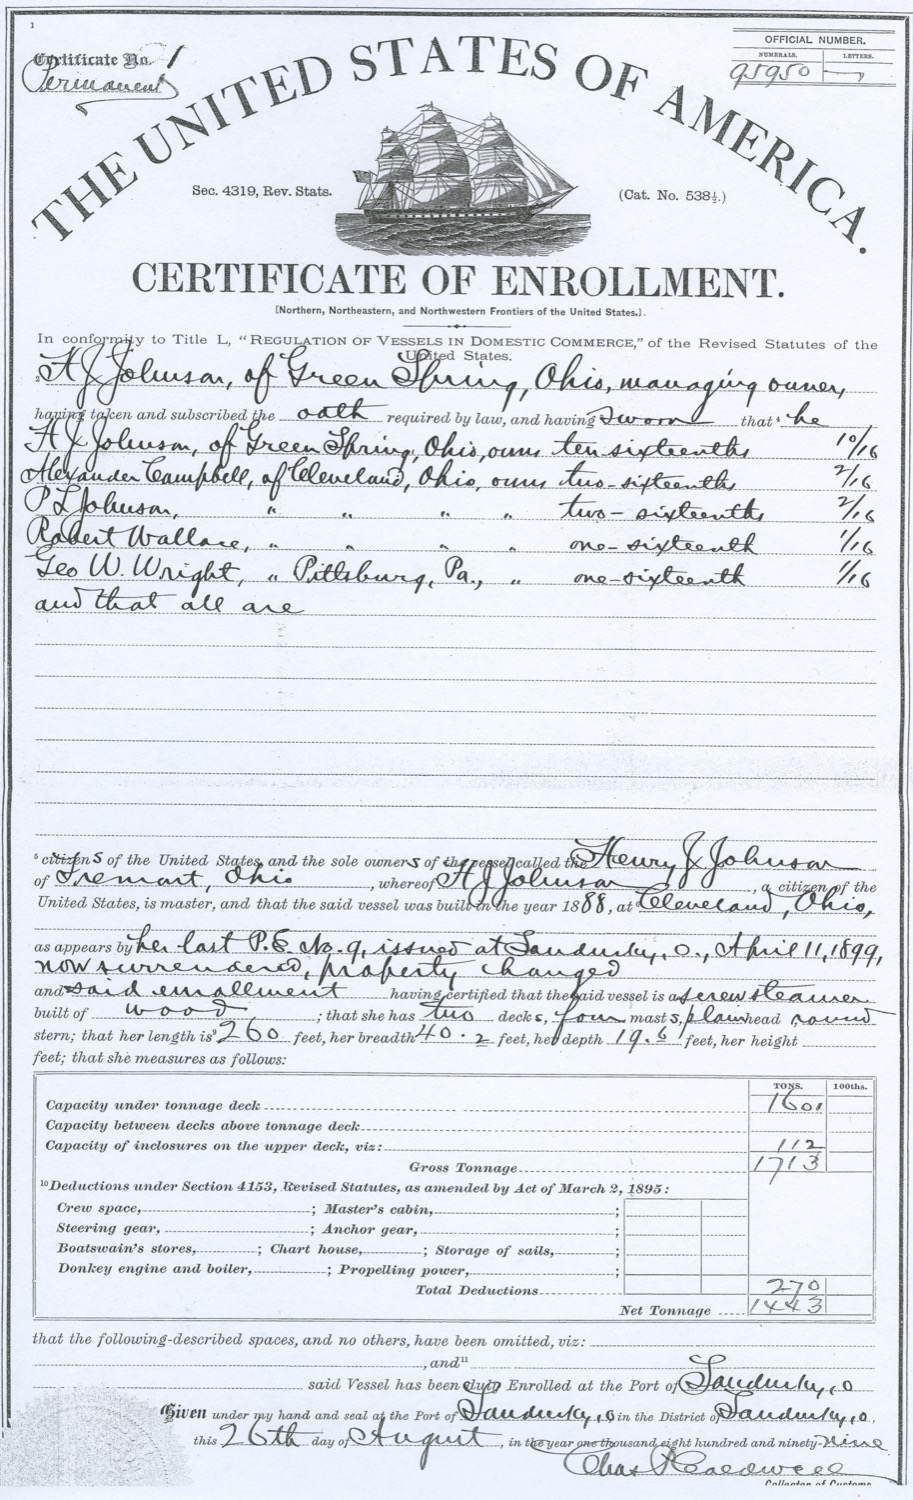 1
Certificate No. 1
Permanent
OFFICIAL NUMBER.
NUMERALS. LETTERS.
95950
THE UNITED STATES OF AMERICA.
Sec. 4319, Rev. Stats. (Cat. No. 538½.)
CERTIFICATE OF ENROLLMENT.
[Northern, Northeastern, and Northwestern Frontiers of the United States.]
In conformity to Title L, "REGULATION OF VESSELS IN DOMESTIC COMMERCE," of the Revised Statutes of the
United States.
2 H J Johnson, of Green Spring, Ohio, managing owner,
having taken and subscribed the oath required by law, and having sworn that he
H J Johnson, of Green Spring, Ohio, owns ten-sixteenths 10/16
Alexander Campbell, of Cleveland, Ohio, owns two-sixteenths 2/16
P L Johnson, " " " " two-sixteenths 2/16
Robert Wallace, " " " " one-sixteenth 1/16
Geo W. Wright, " Pittsburg, Pa., " one-sixteenth 1/16
and that all are
5 citizens of the United States, and the sole owners of the vessel called the Henry J Johnson
of Fremont, Ohio, whereof H J Johnson, a citizen of the
United States, is master, and that the said vessel was built in the year 1888, at Cleveland, Ohio,
as appears by her last P.E. No. 9, issued at Sandusky, O., April 11, 1899,
now surrendered, property changed
and said enrollment having certified that the said vessel is a screw steamer
built of wood; that she has two decks, four masts, plain head, round
stern; that her length is 260 feet, her breadth 40.2 feet, her depth 19.6 feet, her height
feet; that she measures as follows:
TONS. 100ths.
Capacity under tonnage deck 1601
Capacity between decks above tonnage deck
Capacity of inclosures on the upper deck, viz: 112
Gross Tonnage 1713
10 Deductions under Section 4153, Revised Statutes, as amended by Act of March 2, 1895:
Crew space, ; Master's cabin, ;
Steering gear, ; Anchor gear, ;
Boatswain's stores, ; Chart house, ; Storage of sails, ;
Donkey engine and boiler, ; Propelling power, ;
Total Deductions 270
Net Tonnage 1443
that the following-described spaces, and no others, have been omitted, viz:
, and 11
said Vessel has been duly Enrolled at the Port of Sandusky, O
Given under my hand and seal at the Port of Sandusky, O in the District of Sandusky, O.,
this 26th day of August, in the year one thousand eight hundred and ninety-nine
Chas A Caldwell
Collector of Customs